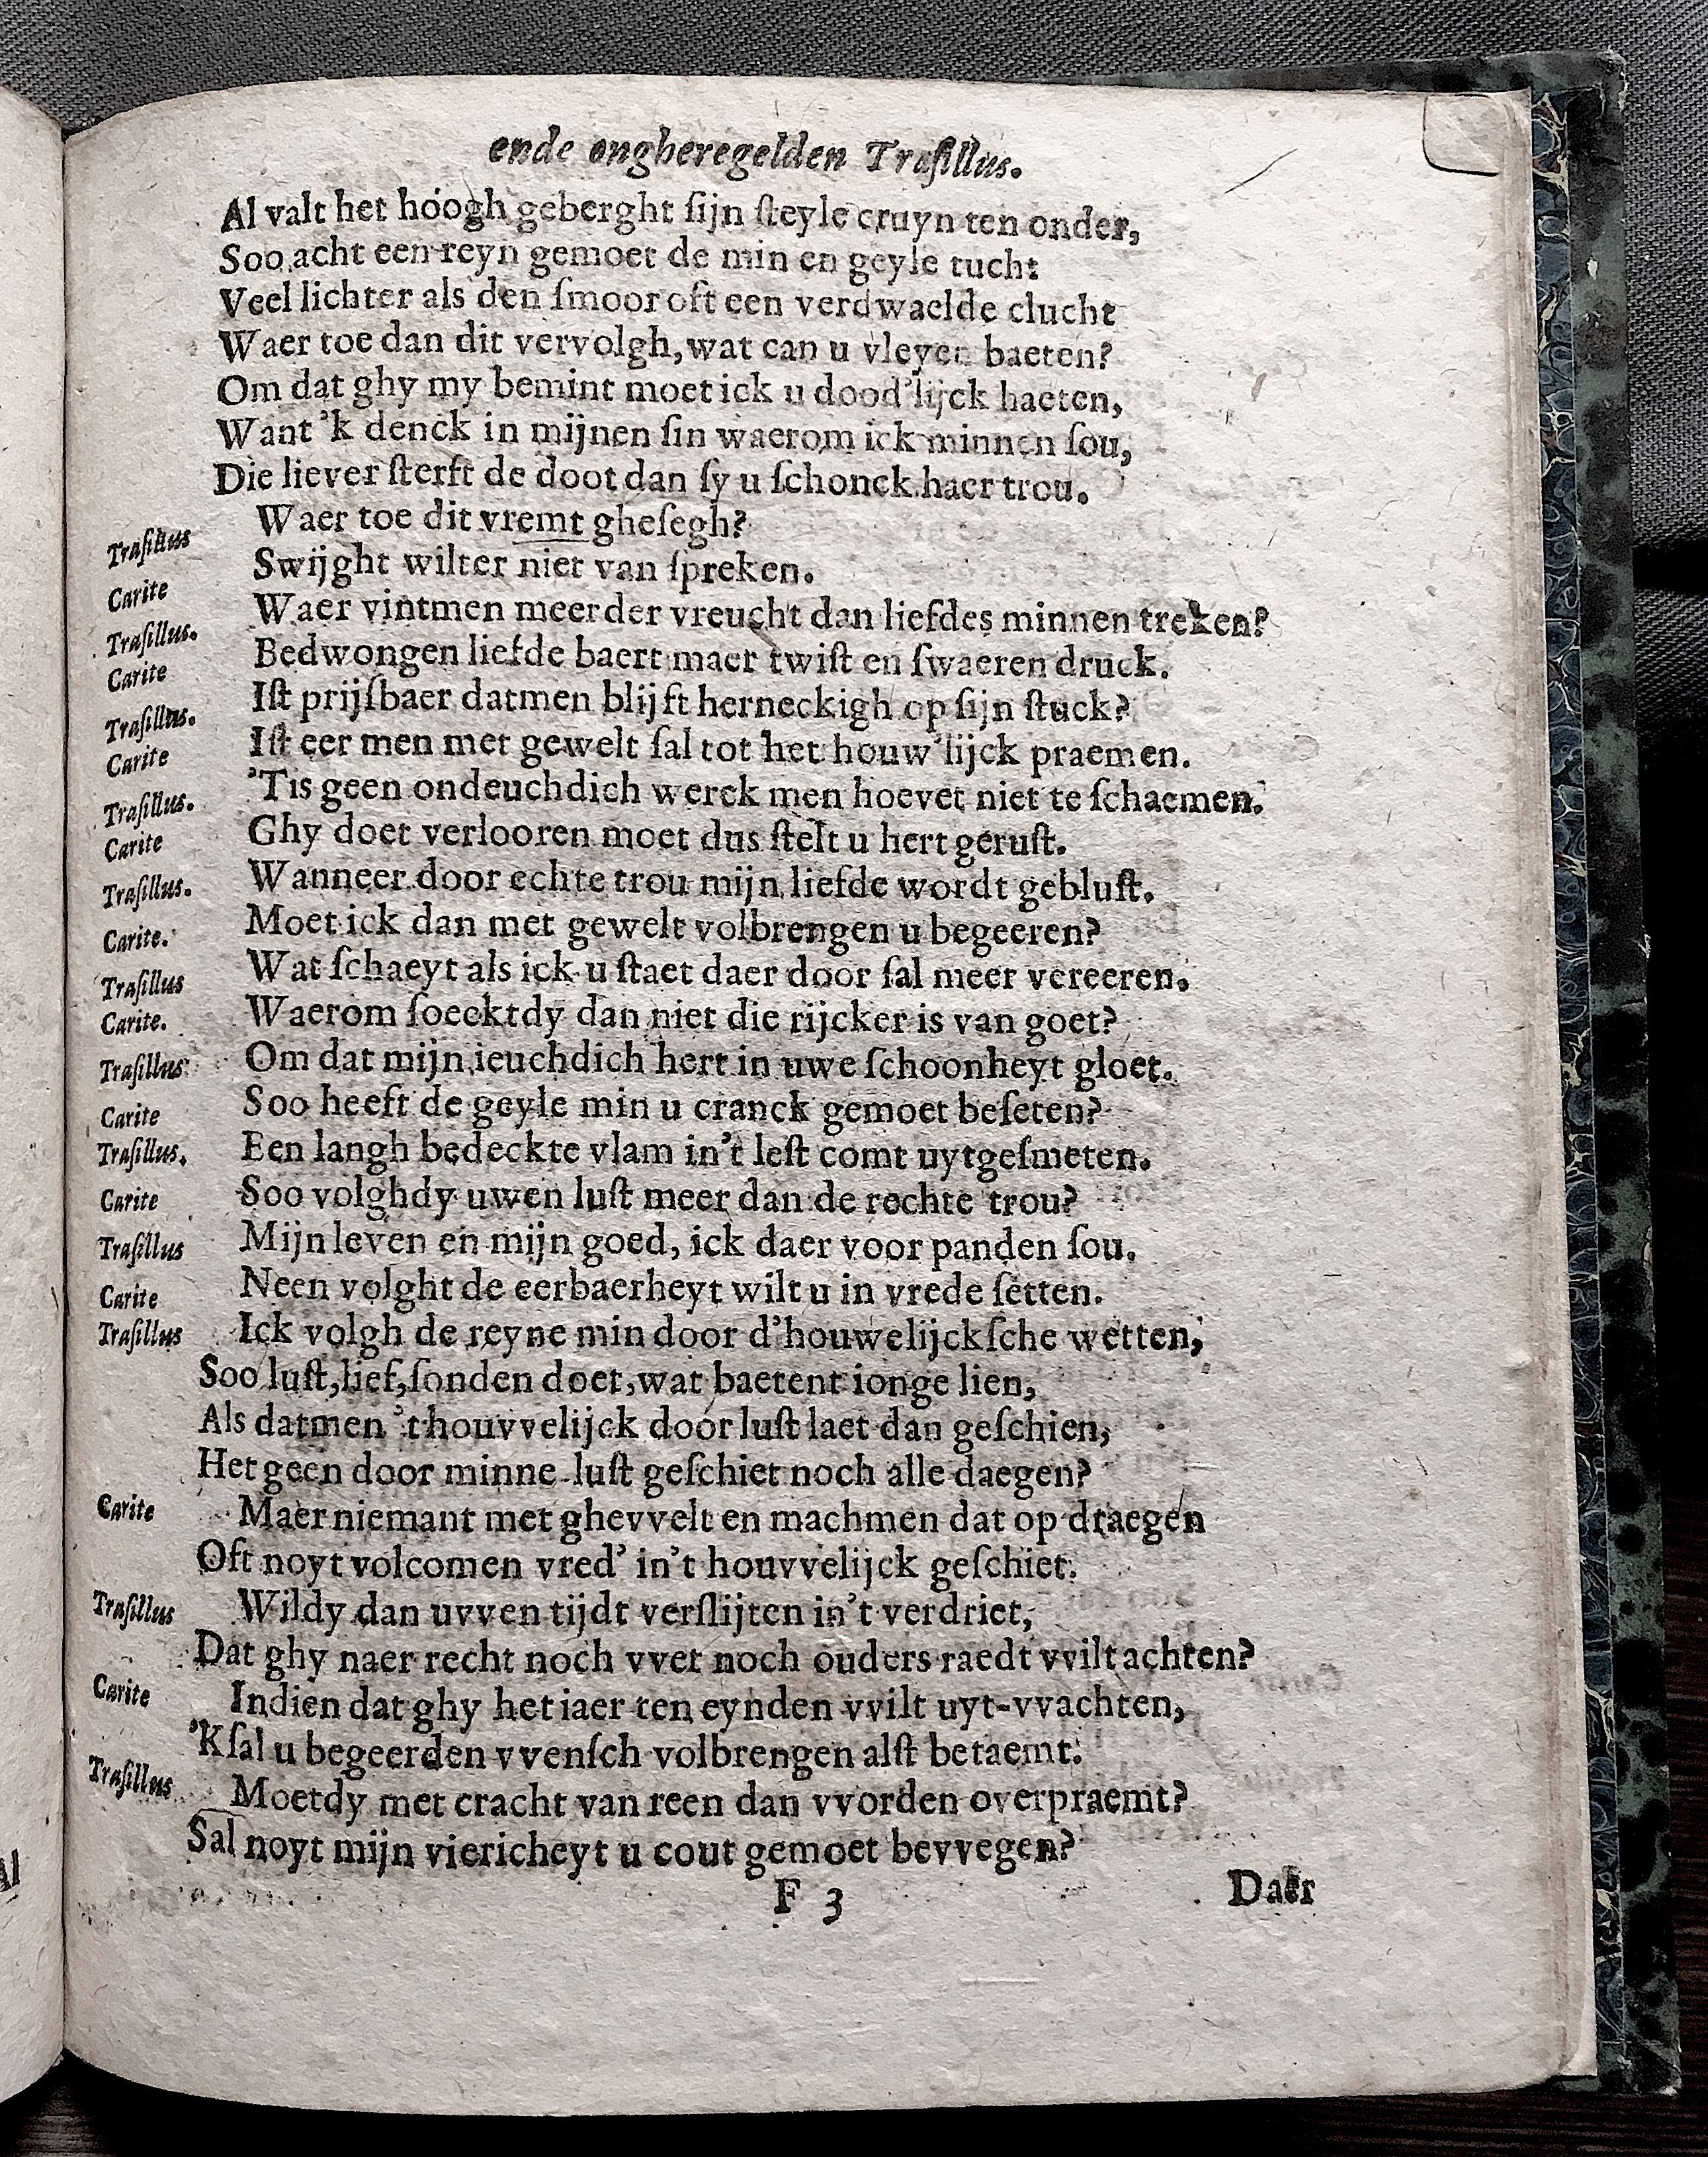 ende ongheregelden Trasillus.
Al valt het hoogh geberght ſijn ſteyle cruyn ten onder,
Soo acht een reyn gemoet de min en geyle tucht
Veel lichter als den ſmoor oft een verdwaelde clucht
Waer toe dan dit vervolgh, wat can u vleyen baeten?
Om dat ghy my bemint moet ick u dood'lijck haeten,
Want 'k denck in mijnen ſin waerom ick minnen ſou,
Die liever ſterft de doot dan ſy u ſchonck haer trou.
Traſillus Waer toe dit vremt gheſegh?
Carite Swijght wilter niet van ſpreken.
Traſillus. Waer vintmen meerder vreucht dan liefdes minnen treken?
Carite Bedwongen liefde baert maer twiſt en ſwaeren druck.
Traſillus. Iſt prijſbaer datmen blijft herneckigh op ſijn ſtuck?
Carite Iſt eer men met gewelt ſal tot het houw'lijck praemen.
Traſillus. 'Tis geen ondeuchdich werck men hoevet niet te ſchaemen.
Carite Ghy doet verlooren moet dus ſtelt u hert geruſt.
Traſillus. Wanneer door echte trou mijn liefde wordt gebluſt.
Carite. Moet ick dan met gewelt volbrengen u begeeren?
Traſillus Wat ſchaeyt als ick u ſtaet daer door ſal meer vereeren.
Carite. Waerom ſoecktdy dan niet die rijcker is van goet?
Traſillus Om dat mijn ieuchdich hert in uwe ſchoonheyt gloet.
Carite Soo heeft de geyle min u cranck gemoet beſeten?
Traſillus. Een langh bedeckte vlam in't leſt comt uytgeſmeten.
Carite Soo volghdy uwen luſt meer dan de rechte trou?
Traſillus Mijn leven en mijn goed, ick daer voor panden ſou.
Carite Neen volght de eerbaerheyt wilt u in vrede ſetten.
Traſillus Ick volgh de reyne min door d'houwelijckſche wetten,
Soo luſt, lief, ſonden doet, wat baetent ionge lien,
Als datmen 't houvvelijck door luſt laet dan geſchien,
Het geen door minne-luſt geſchiet noch alle daegen?
Carite Maer niemant met ghevvelt en machmen dat op draegen
Oft noyt volcomen vred' in't houvvelijck geſchiet.
Traſillus Wildy dan uvven tijdt verſlijten in't verdriet,
Dat ghy naer recht noch vvet noch ouders raedt vvilt achten?
Carite Indien dat ghy het iaer ten eynden vvilt uyt-vvachten,
'K ſal u begeerden vvenſch volbrengen alſt betaemt.
Traſillus Moetdy met cracht van reen dan vvorden overpraemt?
Sal noyt mijn viericheyt u cout gemoet bevvegen?
F 3 Daer